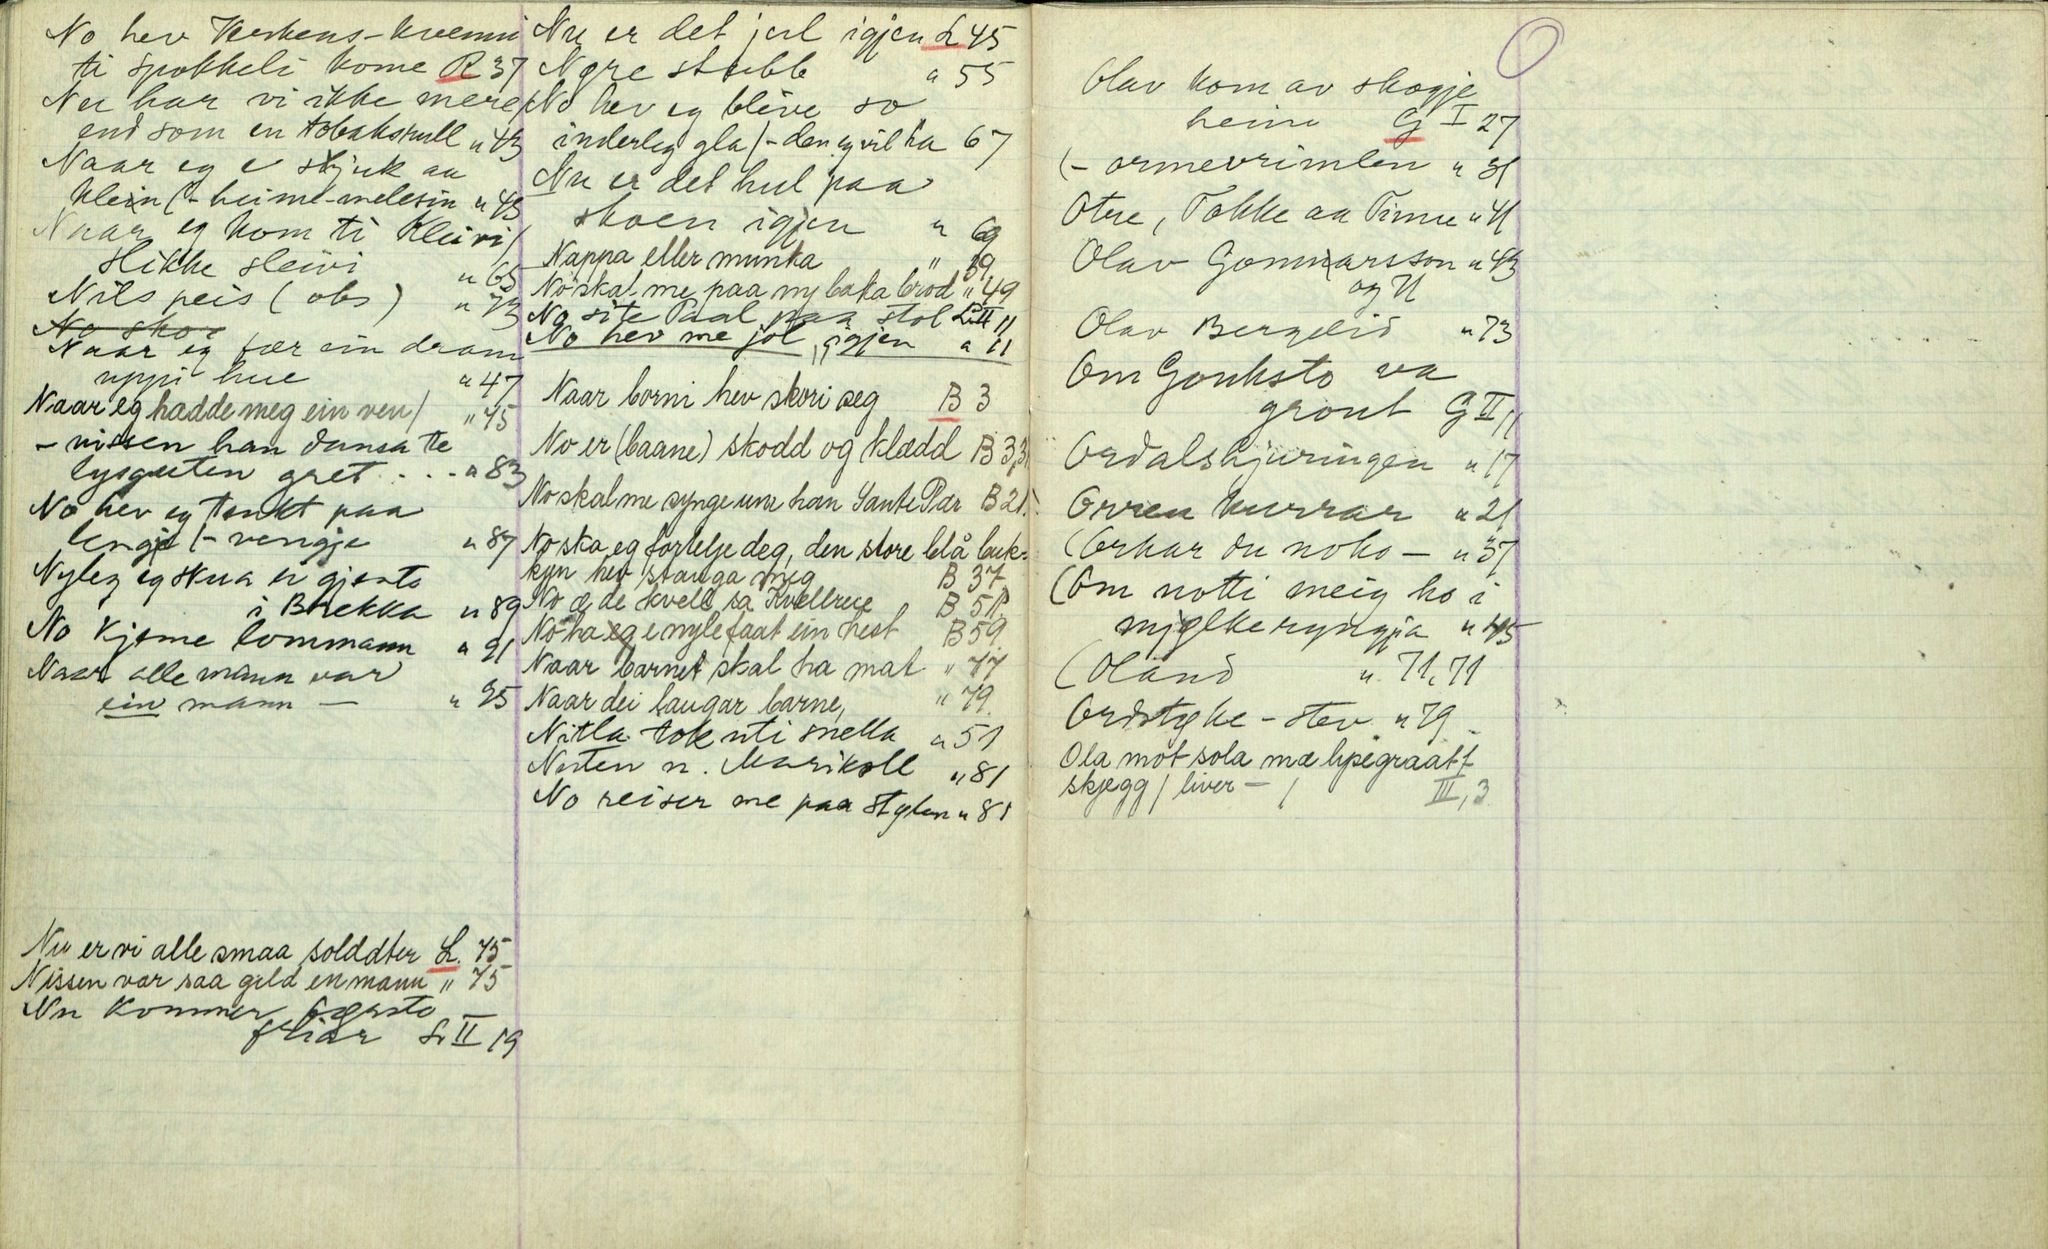 No hev Kerkens-kvenni
ti spokkeli kome R 37
Nu har vi ikke mere/
end som en tobaksrull " 43
Naar eg e sjuk aa
klein (- heime-melesin " 43
Naar eg kom ti Kleivi/
slikke sleivi " 65
Nils peis (obs) " 73
No skoe
Naar eg fær ein dram
uppi hue " 47
Naar eg hadde meg ein ven/ " 45
- nissen han dansa te
lysguten gret . . - " 83
No hev eg tenkt paa
lengje/- vengje " 87
Nyleg eg skua ei gjento
i Brekka " 89
No kjeme lommann " 91
Naar alle mann var
ein mann — " 95
Nu er vi alle smaa solddter L. 75
Nissen var saa gild en mann " 75
Nu kommer
friar L II 19
Nu er det jul igjen L 45
Nøre stubb " 55
No hev eg blive so
inderleg gla/- den eg vil ha 67
Nu er det hul paa
skoen igjen " 69
Nappa eller munka " 19
No skal me paa ny baka brød " 49
No site Paal paa stol L II 11
No hev me jol igjen " 11
Naar borni hev skori seg B 3
No er (baane) skodd og klædd B 3,3
No skal me synge um han Sante Pær B 21.
No ska eg fortelje deg, den store blå buk-
kjen hev stanga meg B 37
No æ de kveld sa Kvellrue B 51
No ha eg e nyle faat ein hest B 59
Naar barnet skal ha mat " 77
Naar dei laugar barne, " 79.
Nitla tok uti snella " 51
Nisten n. Marikoll " 81
No reiser me paa stylen " 81
O
Olav kom av skogje
heim G I 27
(- ormevrimlen " 31
Otre, Tokke aa Tinne " 41
Olav Gonnarsson " 43
og U
Olav Bergslid " 73
Om Gouksto va
grout G II 11
Ordalskjuringen " 17
Orren kurrar " 21
(Orkar du noko — " 37
(Om notti meig ho i
mjølkeryngja " 45
(Oland " 71, 71
Ordstøke - stev " 79
Ola mot sola mæ lipegraatt
skjegg / liver - / III, 3